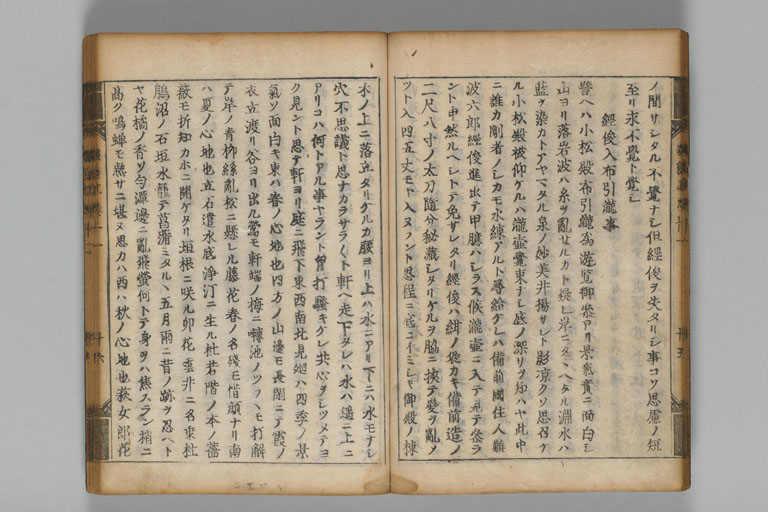 ノ間サシタル不覺ナシ但經俊ヲ失タリシ事コソ思慮ノ短
至リ求不覺ト覺シ
經俊入布引瀧事
譬ヘハ小松殿布引瀧爲遊覧御參アリ景氣實ニ面白シ
山ヨリ落岩波ハ糸ヲ亂セルカト疑レ岸ニタヽヘタル淵水ハ
藍ヲ染カトアヤマタル泉ノ妙美井揚サント影凉クソ思召ケ
ル小松殿被仰ケルハ瀧壷覺束ナシ底ノ深サヲ知ハヤ此中
ニ誰カ剛者ノシカモ水練アルト尋給ケレハ備前國住人難
波六郎經俊進出テ甲臆ハシラス候瀧壷ニ入テ見テ參ラ
ント申然ルヘシトテ免サレタリ經俊ハ紺ノ袋カキ備前造ノ
二尺八寸ノ太刀隨分秘藏シタリケルヲ脇ニ挾テ髪ヲ亂ノ
ツト入四五丈モヤ入ヌラント思程ニ底ニイミシキ御殿ノ棟
木ノ上ニ落立タリケルカ腰ヨリ上ハ水ニアリ下ニハ水モナシ
穴不思議ト思ナカラサラヘト軒ヘ走下タレハ水ハ遥ニ上ニ
アリコハ何トアル事ヤラント胷打騒キケレ共心ヲシツメテヨ
ク見ント思テ軒ヨリ庭ニ飛下東西南北見廻ハ四季ノ景
氣ソ面白キ東ハ春ノ心地也四方ノ山邊モ長閑ニテ霞ノ
衣立渡リ谷ヨリ出ル鶯モ軒端ノ梅ニ囀池ノツラヽモ打解
テ岸ノ青柳絲亂松ニ懸レル藤花春ノ名殘モ惜顔ナリ南
ハ夏ノ心地也立石遣水底浄汀ニ生ル杜若階ノ本ノ薔
薇モ折知カホニ開ケタリ垣根ニ咲ル卯花雲井ニ名乗杜
鵑沼ノ石垣水籠テ菖蒲ミタルヽ五月雨ニ昔ノ跡ヲ忍ヘト
ヤ花橘ノ香ソ匂潭邊ニ亂飛螢何トテ身ヲハ焦スラン梢ニ
高ク鳴蟬モ熱サニ堪ヌ思カハ西ハ秋ノ心地也萩女郎花